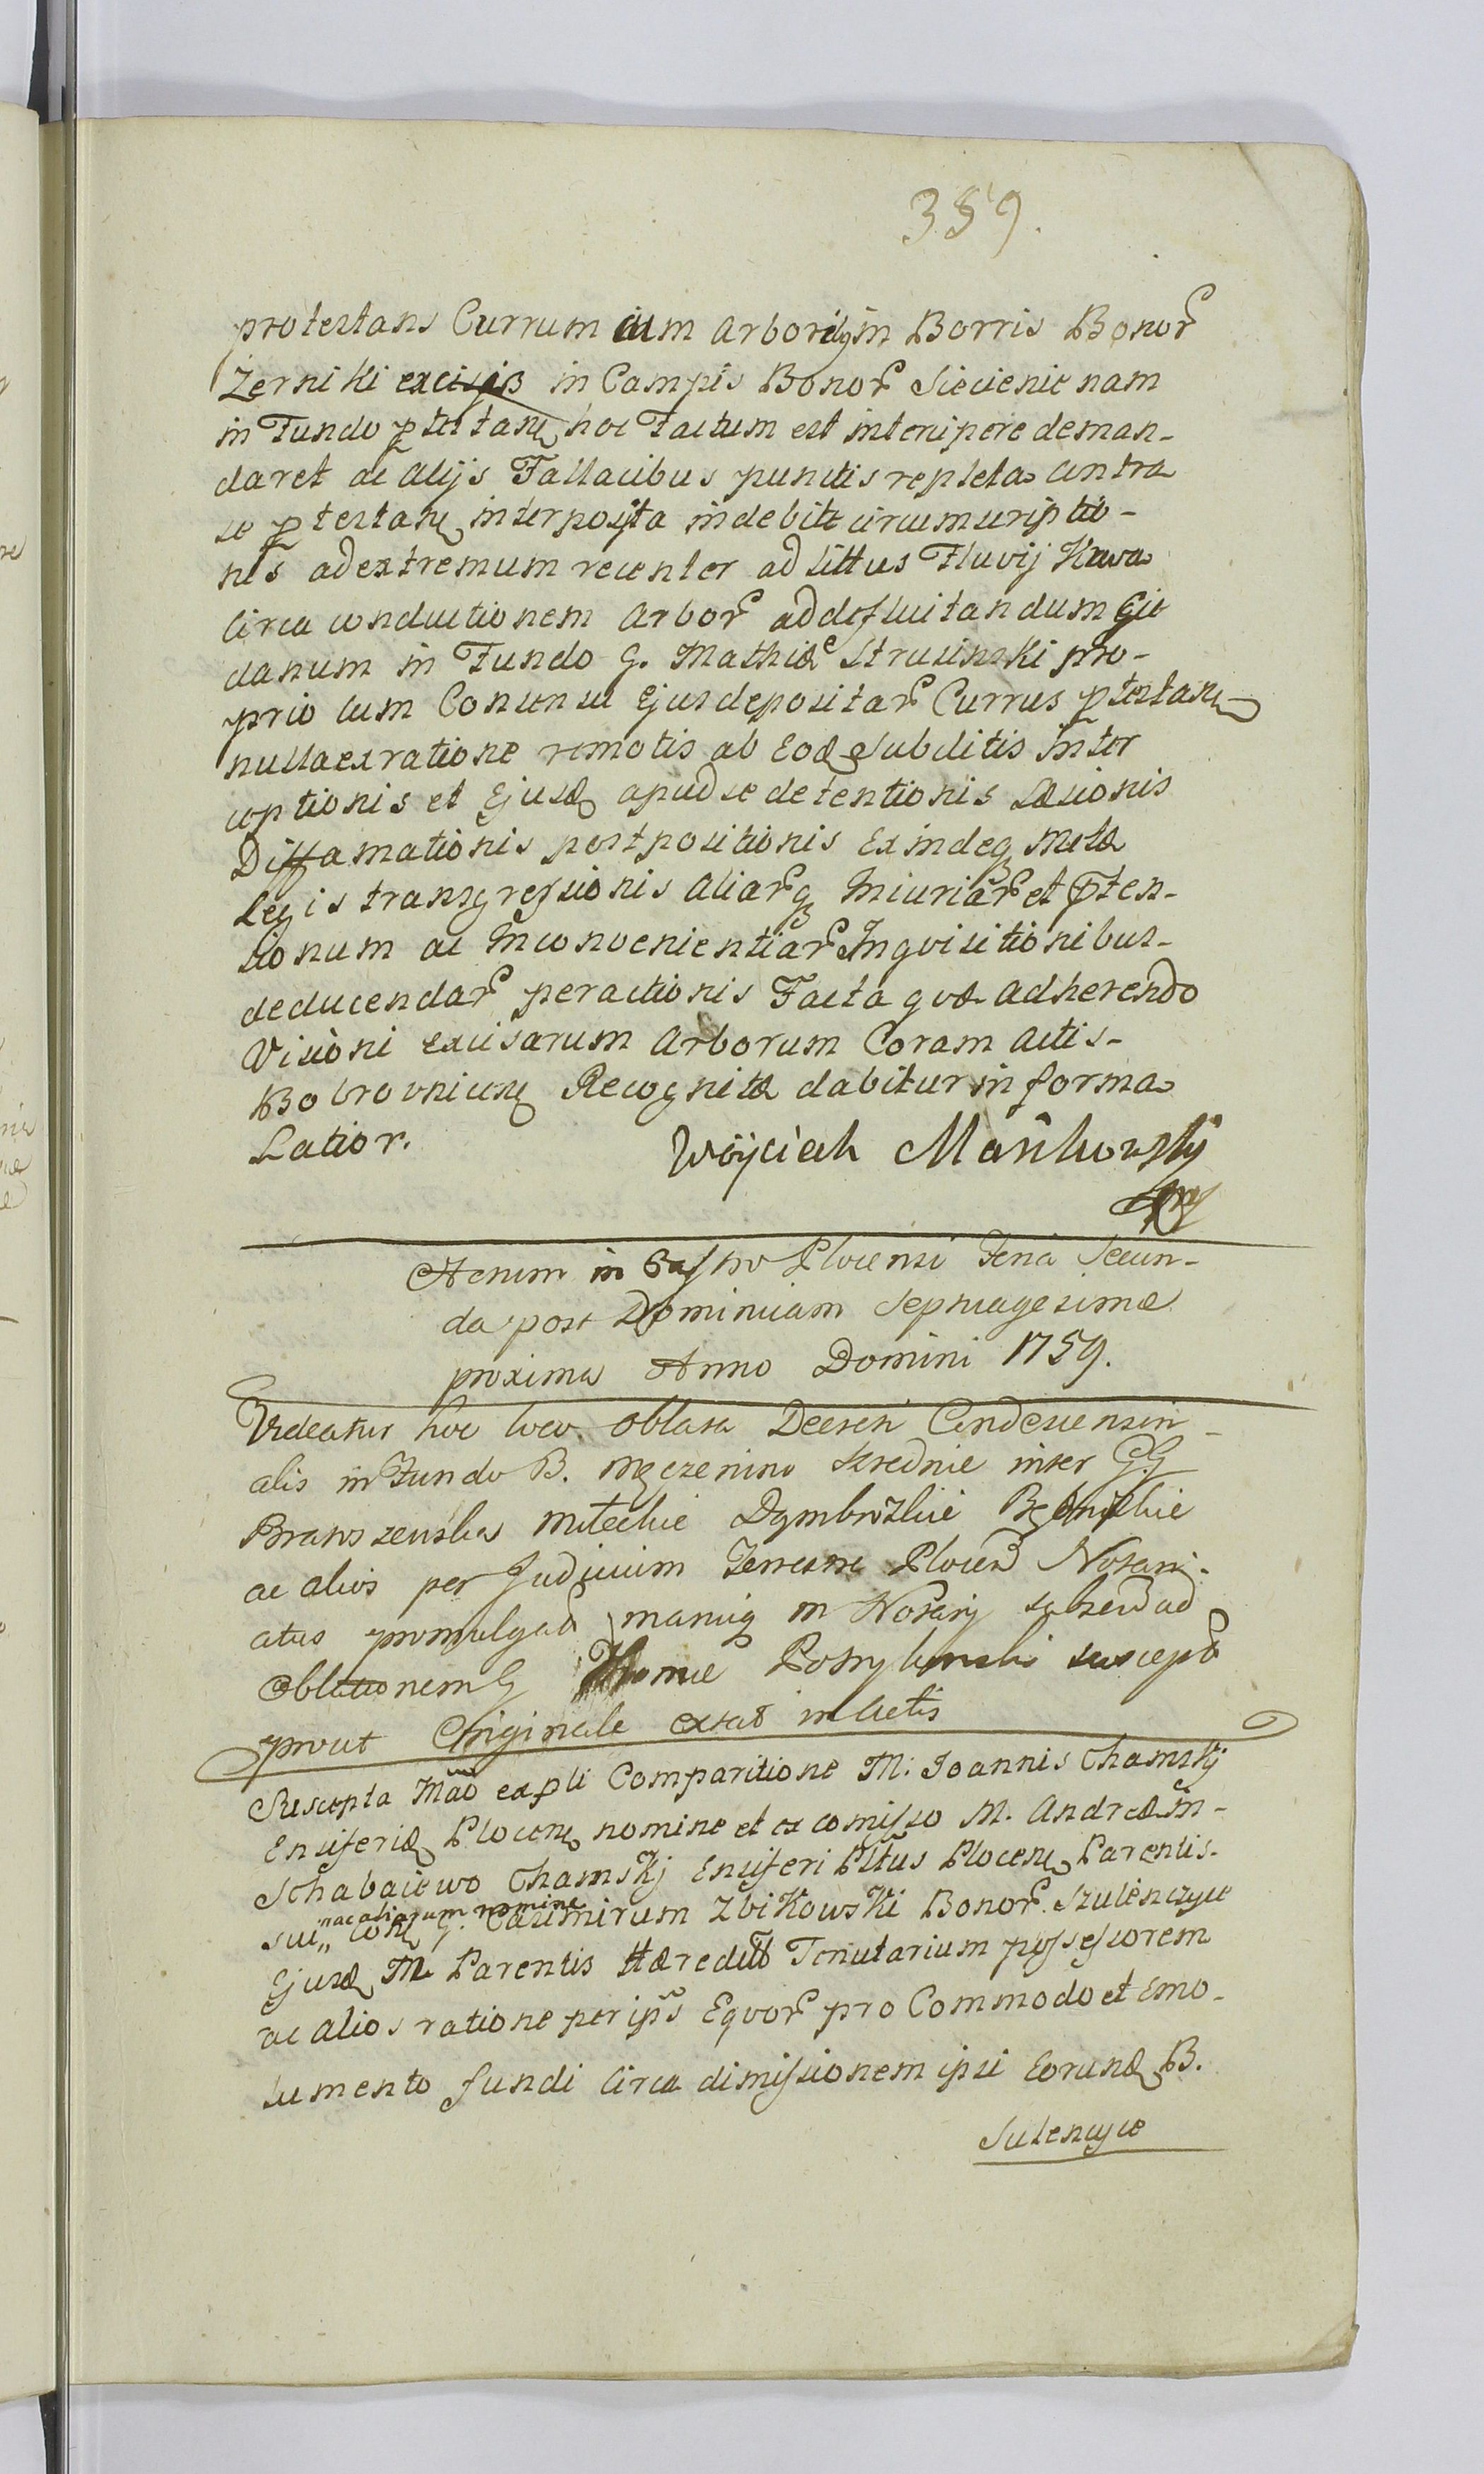 359.
protestans Currum cum arboribus in Borris Bonor
Zerniki excisis in Campis Bonor Siecienie nam
in Fundo ptestans hoc Factum est intercipere deman-
daret ac alijs Fallacibus punctis repleta contra
se ptestans interposita indebite circumscriptio-
nis ad extremum recenter ad littus Fluvij Krwa
Circa conductionem arbor ad defluitandum Ge
danum in Fundo G. Mathiæ Strusinski pro-
prio cum Consensu ejus depositar Currus ptestans
nulla ex ratione remotis ab Eod Subditis inter
ceptionis et Ejusd apud se detentionis Læsionis
Diffamationis postpositionis Exindeq Metæ
Legis transgressionis aliarq Iniuriar et pten-
sionum ac Inconvenientiar Inqvisitionibus-
deducendar peractionis Facta qvæ adherendo
Visioni excisarum arborum Coram actis-
Bobrovnicens Recognitæ dabitur in forma
Latior. Woyciech Mańkowsky
Actum in Castro Plocensi Feria Secun-
da post Dominicam Septuagesimæ
proxima Anno Domini 1759.
Videatur hoc loco oblata Decreti Condescensin
alis in Fundo B. Męczenino Srednie inter G.G
Branszewskas Miteckie Dąmbrozkie
ac alios per Judicium Terrestre Plocen Notari-
atus promulgat manuq in Notary subscr ad
Oblationem G suscept
prout Originale extat in Actis
Suscepta Mad expli Comparitione M: Joannis Chamskj
Ensiferid Plocens nomine et ex comisso M. Andreæ in-
Schabaiewo Chamskj Ensiferi Pltus Plocens Parentis-
nac aliarum nomine
sui " Cons G. Casimirum Zbikowski Bonor. Szulenczyce
Ejusd M. Parentis Hæredit Tenutarium possessorem
ac alios ratione per ips Eqvor pro Commodo et Emo-
lumento fundi Circa dimissionem ipsi Eorund B.
Sulencyce